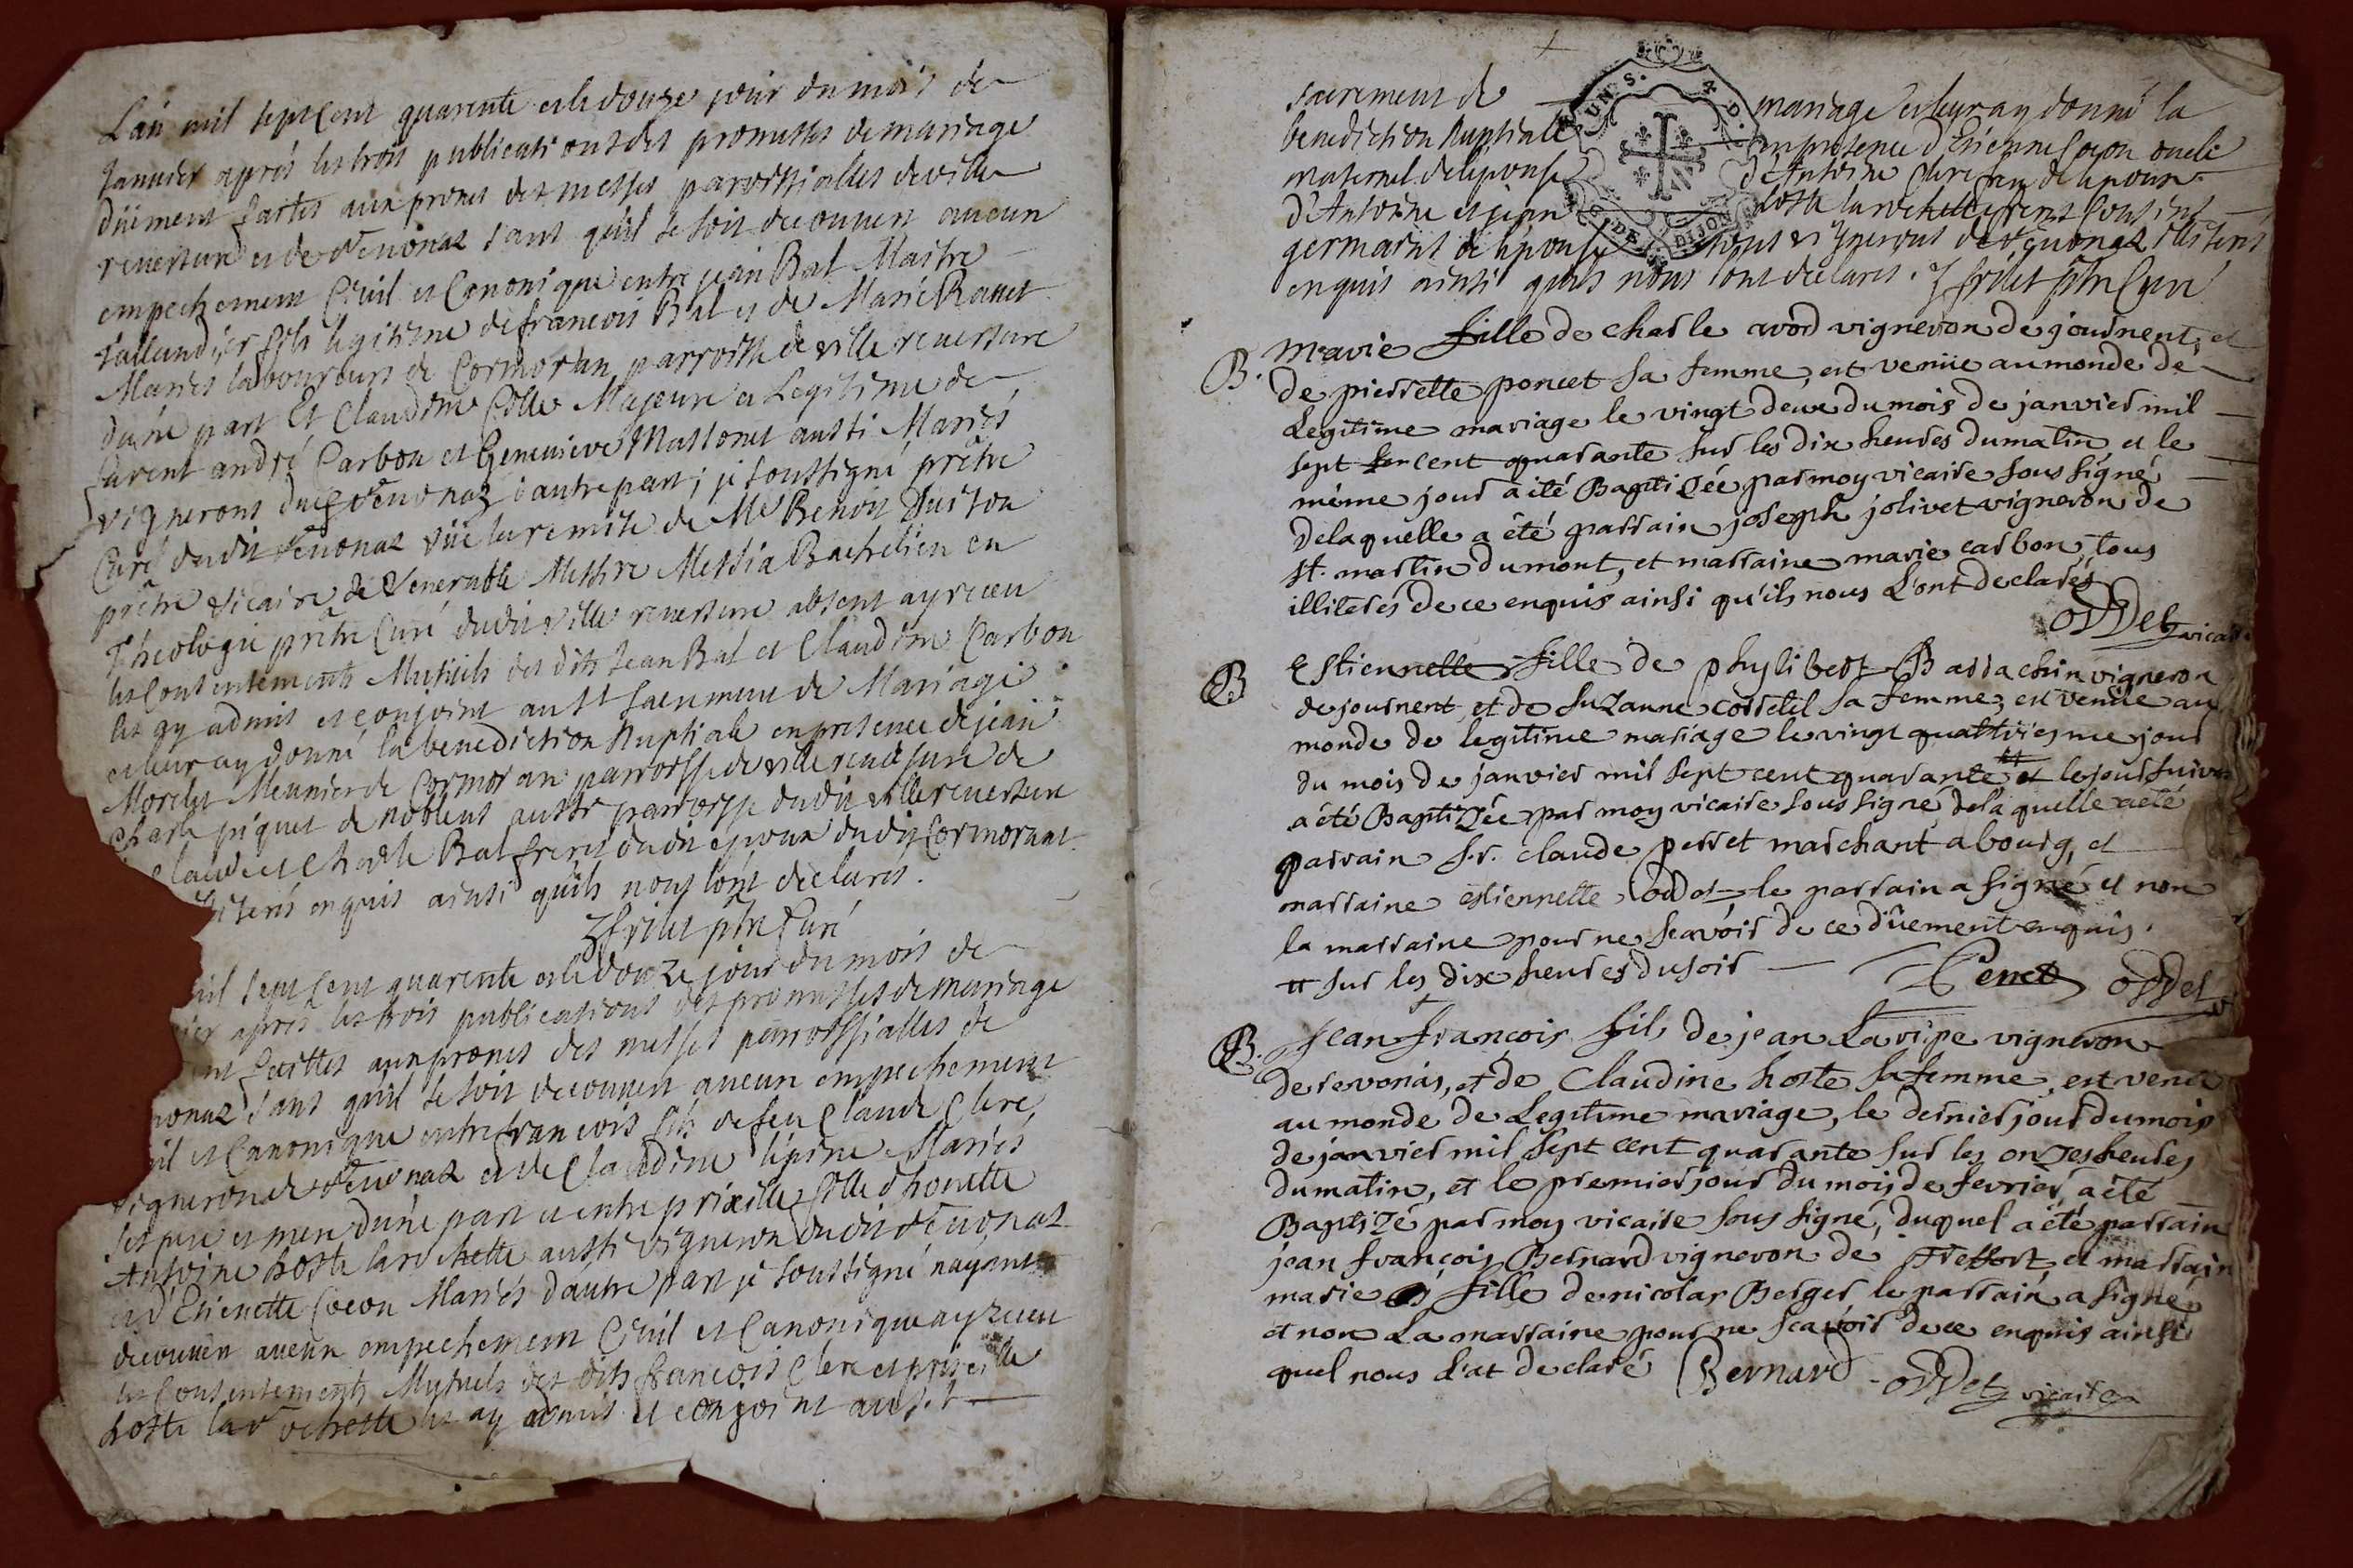 L'an mil sept cent quarente et le douze jour du mois de
Janvier aprés les trois publications des promesses de mariage
düement faites aux prones des messes parroissialles de ville
reversure et de revonaz sans qu'il se soit decouvert aucun
empechement Civil et Canonique entre jean Bal Maitre
Taillandier fils legitime de francois Bal et de Marie Ravet
Mariés laboureurs de Cormoran parroisse de ville reversure
d'une part Et Claudine fille Majeure et Legitime de
furent andré Carbon et Genevieve Massonet aussi Mariés
vignerons dudit revonaz d'autre part ; je soussigné prêtre
Curé dudit revonaz vüe la remise de Mre Benoit
prêtre vicaire de Venerable Messire Messia Bachelier en
Theologie prêtre Curé dudit ville reversure absent ay receu
les Consentements Mutuels des dits Jean Bal et Claudine Carbon
les ay admis et conjoint au St Sacrement de Mariage
et leur ay donné la benediction Nuptiale en presence de jean
Morelet Meunier de Cormoran parroisse de ville reversure de
Charle piquet de noblens aussi parroisse dudit ville reversure
Claude et Charle Bal freres dudit epoux dudit Cormorant
illiterés enquis ainsi qu'ils nous l'ont declarés.
J frilet ptre Curé
mil sept Cent quarente et le douze jour du mois de
ier aprés les trois publications des promesses de mariage
nt faittes aux prones des messes parroissialles de
vonaz sans qu'il se soit decouvert aucun empechement
il et Canonique entre francois fils de feu Claude Clerc
vigneron de revonaz et de Claudine lépine Mariés
ses pere et mere d'une part et entre prixille fille d'honette
Antoine hoste larochette aussi vigneron dudit revonaz
et d'Etienette Cocon Mariés d'autre part je soussigné n'ayant
decouvert aucun empechement Civil et Canonique ay receu
les Consentements Mutuels des dits francois Clerc et prixille
hoste larochette les ay admis et conjoint au St
sacrement de mariage et leur ay donné la
benediction Nuptiale en presence d'Etienne Cocon oncle
maternel de l'epouse d'Antoine Clerc de l'epoux
d'Antoine et jean hoste larochette freres Cousins
germains de l'epouse tous vignerons de revonaz illiterés
enquis ainsi qu'ils nous l'ont declarés. J frilet ptre Curé
B. Marie fille de charle avod vigneron de journent, et
de pierrette poncet sa femme, est venüe au monde de
Legitime mariage le vingt deux du mois de janvier mil
sept cent quarante sur les dix heures du matin et le
même jour a été Baptizée par moy vicaire sous signé
de laquelle a été parrain joseph jolivet vigneron de
st. martin du mont, et marraine marie carbon, tous
illiterés de ce enquis ainsi qu'ils nous L'ont declarés
oddet vicaire
B Estiennette fille de phylibert Barrachin vigneron
de journent et de suzanne corretel sa femme, est venüe au
monde de legitime mariage le vingt quattriesme jour
du mois de janvier mil sept cent quarante # et le jour suivant
a été Baptizée par moy vicaire sous signé, de la quelle a eté
parrain sr. claude perret marchant a bourg, et
marraine estiennette oddet le parrain a signé et non
la marraine pour ne scavoir de ce dûement enquis.
# sur les dix heures du soir oddet v
B. Jean françois fils de jean Lavripe vigneron
de revonas, et de Claudine hoste sa femme, est venu
au monde de Legitime mariage, le dernier jour du mois
de janvier mil sept cent quarante sur les onzes heures
du matin, et le premier jour du mois de fevrier, a été
Baptizé par moy vicaire sous signé, duquel a été parrain
jean françois Bernard vigneron de Treffort, et marrain
marie fille de nicolas Berger le parrain a signé
et non La marraine pour ne scavoir de ce enquis ainsi
quel nous L'at declaré Bernard oddet vicaire